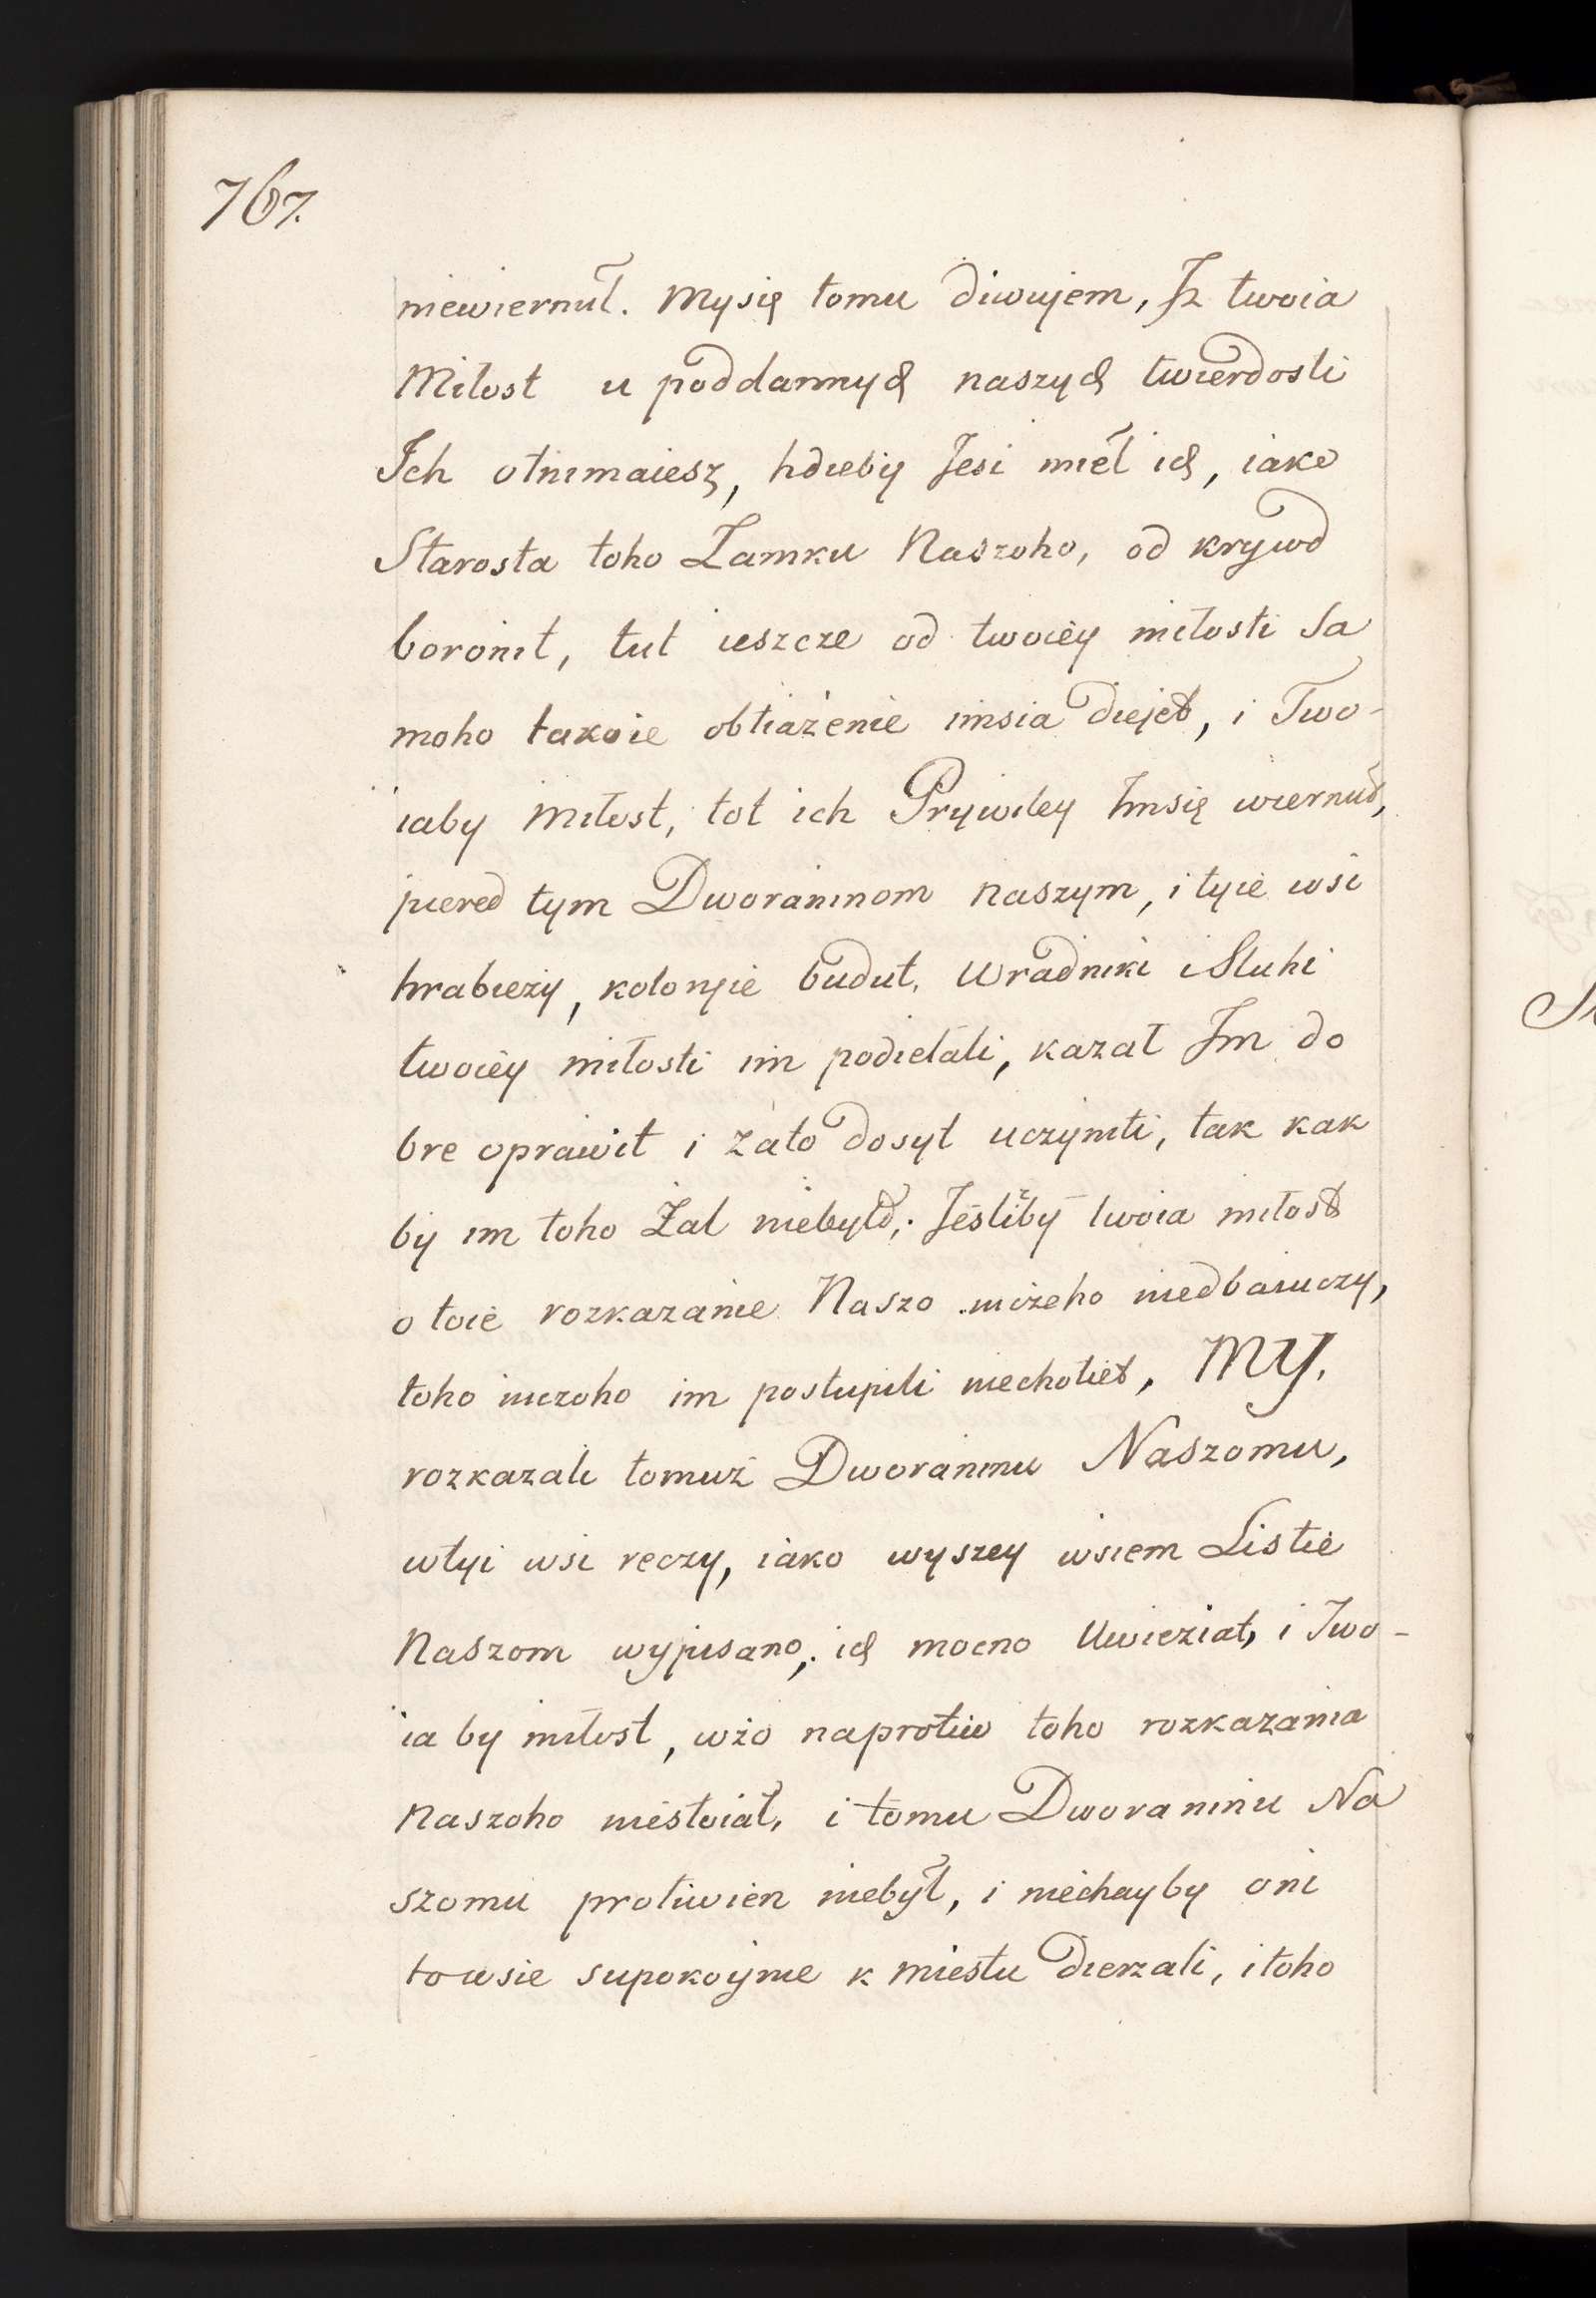 767.
niewiernuł. Mysię tomu diwujem, Iż twoia
Miłost u poddannych naszych twierdosti
Ich otnimaiesz, hdieby Jesi mieł ich, iako
Starosta toho Zamku Naszoho, od krywd
boronit, tut ieszcze od twoiey miłosti Sa
moho takoie obtiażenie imsia diejet, i Two-
iaby Miłost, tot ich Prywiley Imsię wiernuł,
pered tym Dworaninom naszym, i tyie wsi
hrabieży, kotoryie budut, Wradniki i Sluhi
twoiey miłosti im podiełali, kazał Im do
bre oprawit i zato dosyt uczyniti, tak kak
by im toho Żal niebyło; Jesliżby twoia miłost
o toie rozkazanie Naszo niczeho niedbaiuczy,
toho niczoho im postupili niechotieł, MY.
rozkazali tomuż Dworaninu Naszomu,
wtyi wsi reczy, iako wyszey wsiem Listie
Naszom wypisano, ich mocno Uwieziat, i Two-
ia by miłost, wżo naprotiw toho rozkazania
Naszoho niestoiał, i tomu Dworaninu Na
szomu protiwien niebył, i niechayby oni
towsie supokoynie k miestu dierzali, i toho